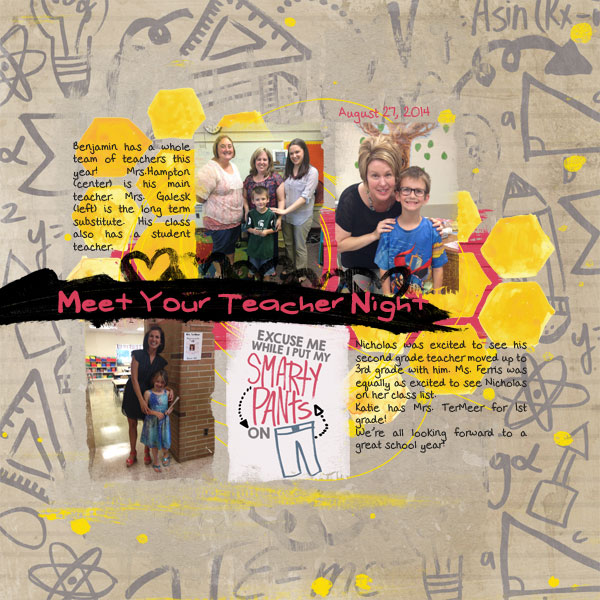 Asin(kx-
August 27, 2014
Benjamin has a whole
team of teachers this
year! Mrs.Hampton
(center) is his main
teacher. Mrs. Galesk
(left) is the long term
substitute. His class
also has a student
teacher.
Meet Your Teacher Night
EXCUSE ME
WHILE I PUT MY
SMARTY
PANTS
ON
Nicholas was excited to see his
second grade teacher moved up to
3rd grade with him. Ms. Ferris was
equally as excited to see Nicholas
on her class list.
Katie has Mrs. TerMeer for 1st
grade!
We're all looking forward to a
great school year!
E=mc